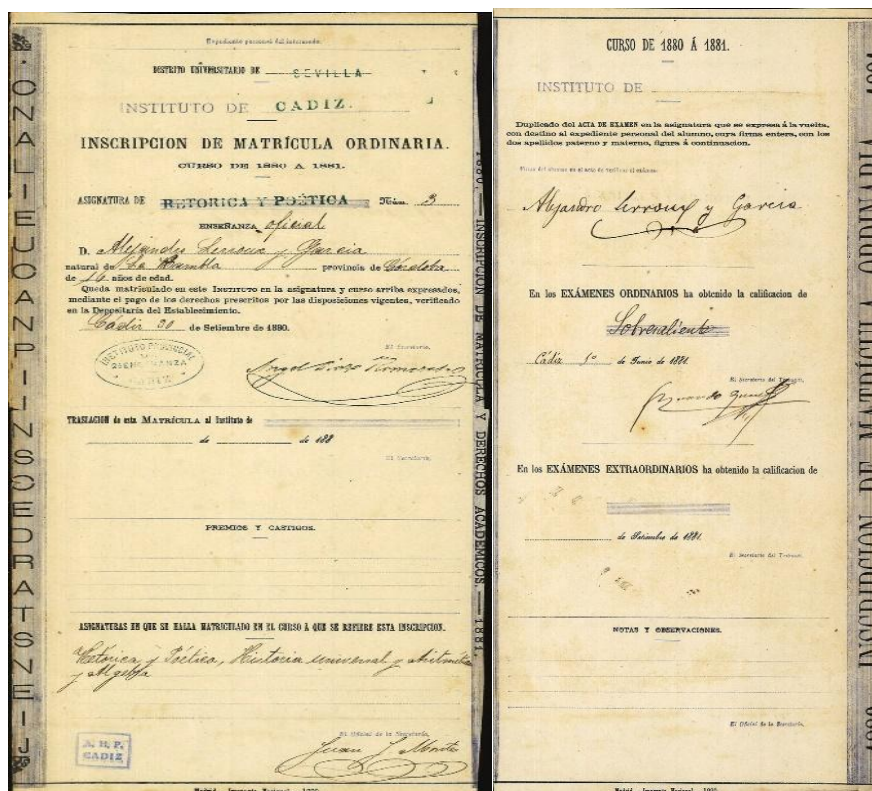 Expediente personal del interesado.
DISTRITO UNIVERSITARIO DE SEVILLA
INSTITUTO DE CADIZ.
INSCRIPCION DE MATRÍCULA ORDINARIA.
CURSO DE 1880 A 1881.
ASIGNATURA DE RETORICA Y POÉTICA Núm. 3
ENSEÑANZA oficial
D. Alejandro Lerroux y Garcia
natural de La Rambla provincia de Córdoba
de 16 años de edad.
Queda matriculado en este INSTITUTO en la asignatura y curso arriba expresados,
mediante el pago de los derechos prescritos por las disposiciones vigentes, verificado
en la Depositaría del Establecimiento.
Cádiz 30 de Setiembre de 1880.
El Secretario,
INSTITUTO PROVINCIAL
CADIZ
TRASLACION de esta MATRÍCULA al Instituto de
de de 188
El Secretario,
PREMIOS Y CASTIGOS.
ASIGNATURAS EN QUE SE HALLA MATRICULADO EN EL CURSO Á QUE SE REFIERE ESTA INSCRIPCION.
Retorica y Poética, Historia universal y Aritmética
y Algebra
El Oficial de la Secretaría,
Juan J. Montes
A. H. P.
CADIZ
Madrid. Imprenta Nacional. 1880.
1880. — INSCRIPCION DE MATRÍCULA Y DERECHOS ACADEMICOS. — 1881.
CURSO DE 1880 Á 1881.
INSTITUTO DE
Duplicado del ACTA DE EXAMEN en la asignatura que se expresa á la vuelta,
con destino al expediente personal del alumno, cuya firma entera, con los
dos apellidos paterno y materno, figura á continuacion.
Firma del alumno en el acto de verificar el exámen.
Alejandro Lerroux y Garcia
En los EXÁMENES ORDINARIOS ha obtenido la calificacion de
Sobresaliente
Cádiz 1º de Junio de 1881.
El Secretario del Tribunal,
En los EXÁMENES EXTRAORDINARIOS ha obtenido la calificacion de
de Setiembre de 1881.
El Secretario del Tribunal,
NOTAS Y OBSERVACIONES.
El Oficial de la Secretaría,
Madrid. Imprenta Nacional. 1880.
INSCRIPCION DE MATRÍCULA ORDINARIA